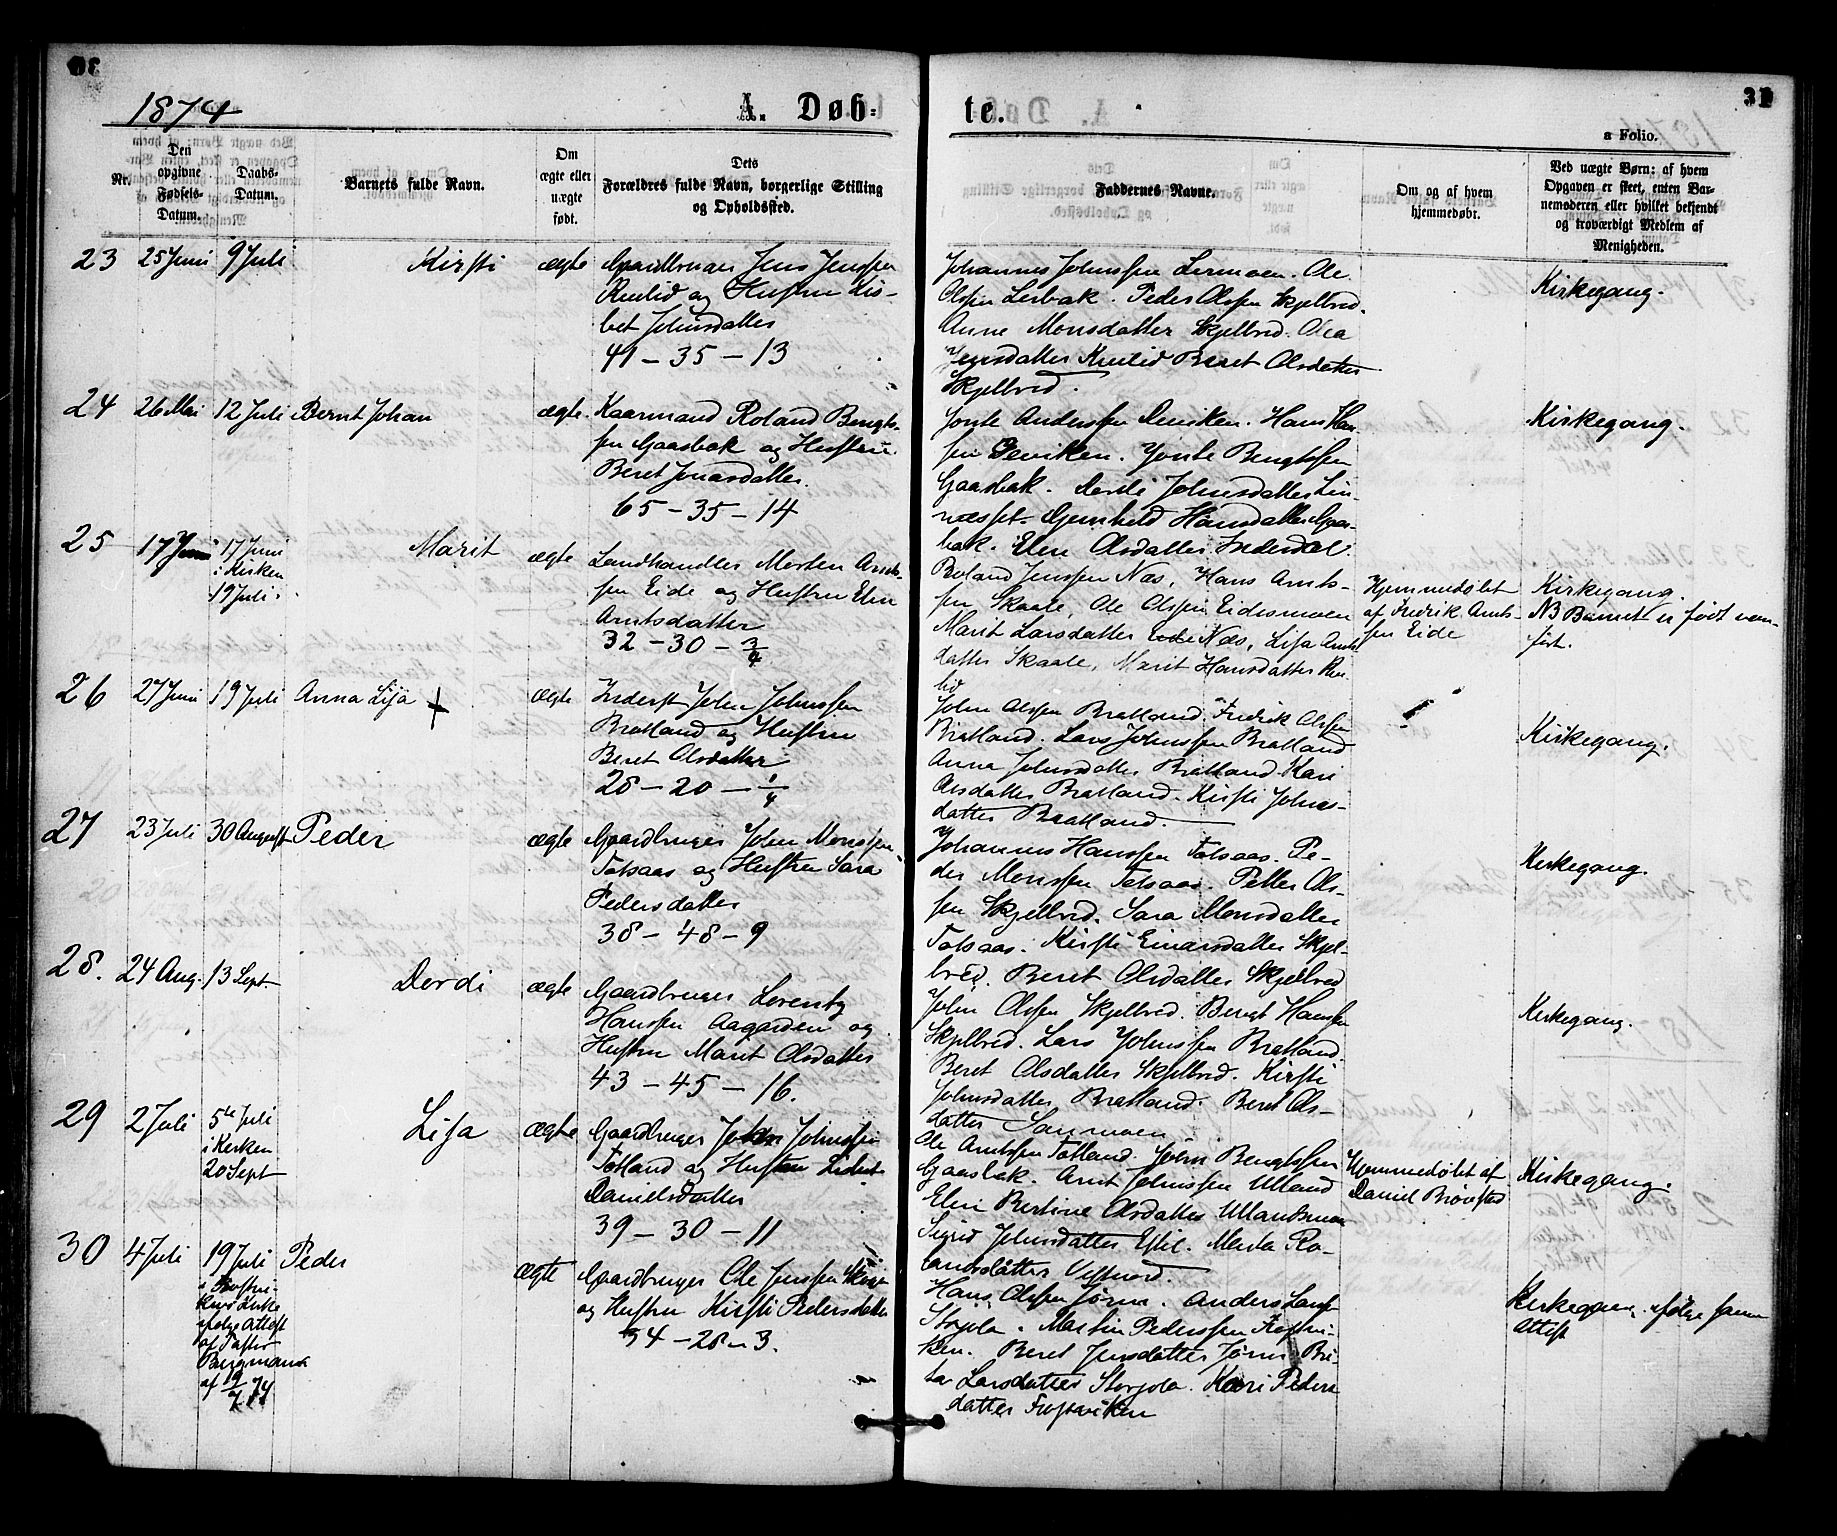 30
31
1874
A. Døb-
te.
a Folio.
Nr.
Den opgivne Fødsels-Datum.
Daabs-Datum.
Barnets fulde Navn.
Om ægte eller uægte født.
Dets Forældres fulde Navn, borgerlige Stilling og Opholdssted.
Faddernes Navne.
Om og af hvem hjemmedøbt.
Ved uægte Børn: af hvem Opgaven er skeet, enten Barnemoderen eller hvilket bekjendt og troværdigt Medlem af Menigheden.
23 25 Juni 9 Juli Kirsti ægte Gaardbruger Jens Jenssen
og Hustru Lis-
bet Johnsdatter
41 - 35 - 13
Johannes Johnssen Lermoen. Ole
Olssen Lerbak. Peder Olssen Skjelbred.
Anne Monsdatter Skjelbred. Olea
Jensdatter Beret Olsdatter
Skjelbred.
Kirkegang.
24 26 Mai 12 Juli Bernt Johan ægte Kaarmand Roland Bengts-
sen Gaasbak og Hustru
Beret Jonasdatter.
65 - 35 - 14
Jonte Anderssen Hans Han-
sen Deviken. Jonte Bengtssen
Gaasbak. Dordi Johnsdatter Lin-
næsset. Gjertrud Hansdatter Gaas-
bak. Elen Olsdatter
Kirkegang.
25 17 Juni 17 Juni
i Kirken
19 Juli. Marit ægte Landhandler Morten Arnt-
sen Eide og Hustru Elen
Arntsdatter
32 - 30 - 3/4
Roland Jenssen Næs, Hans Arnts-
sen Skaale, Ole Olssen Eidesmoen
Marit Larsdatter Næs, Lisa Arnts
datter Skaale, Marit Hansdatter
lid
Hjemmedøbt
af Fredrik Arnts-
sen Eide
Kirkegang.
NB Barnet er født van-
før.
26 27 Juni 19 Juli Anna Lisa + ægte Inderst John Johnssen
Bratland og Hustru
Beret Olsdatter
28 - 20 - 1/4
John Olssen Bratland. Fredrik Olssen
Bratland. Lars Johnssen Bratland
Anna Johnsdatter Bratland. Kari
Olsdatter Bratland. Kirsti Johns-
datter Bratland.
Kirkegang.
27 23 Juli 30 August Peder ægte Gaardbruger John Monssen
Totsaas og Hustru Sara
Pedersdatter
38 - 48 - 9
Johannes Hanssen Totsaas. Pe-
der Monssen Totsaas. Petter Ols-
sen Skjelbred. Sara Monsdatter
Totsaas. Kirsti Einarsdatter Skjel-
bred. Beret Olsdatter Skjelbred
Kirkegang.
28. 24 Aug. 13 Sept. Dordi ægte Gaardbruger Lorentz
Hanssen Aagarden og
Hustru Marit Olsdatter
43 - 45 - 16.
John Olssen Skjelbred. Bengt Hanssen
Skjelbred. Lars Johnssen Bratland.
Beret Olsdatter Skjelbred. Kirsti
Johnsdatter Bratland. Beret Ols-
datter Sanmoen
Kirkegang.
29 2 Juli 5te Juli
i Kirken
20 Sept Lisa ægte Gaardbruger John Johnssen
Totland og Hustru
Danielsdatter
39 - 30 - 11
Ole Arntssen Totland. John Bengtssen
Gaasbak. Arnt Johnssen Ulland
Elen Bertine Olsdatter
Sigrid Johnsdatter Estil. Ro-
landsdatter Vestnord.
Hjemmedøbt af
Daniel
Kirkegang.
30 4 Juli 19 Juli
i Frostvi-
kens Kirke
ifølge Attest
af Pastor
Bergmann
af 19/7 74 Peder ægte Gaardbruger Ole Jenssen
og Hustru Kirsti Pedersdatter
34 - 28 - 3.
Hans Olssen Jørm. Anders Larss
Storjola. Martin Pederssen Frostvi-
ken. Beret Jensdatter Jørm. Bri-
ta Larsdatter Storjola. Kari Peders
datter Frostviken
Kirkegang. ifølge samme
Attest